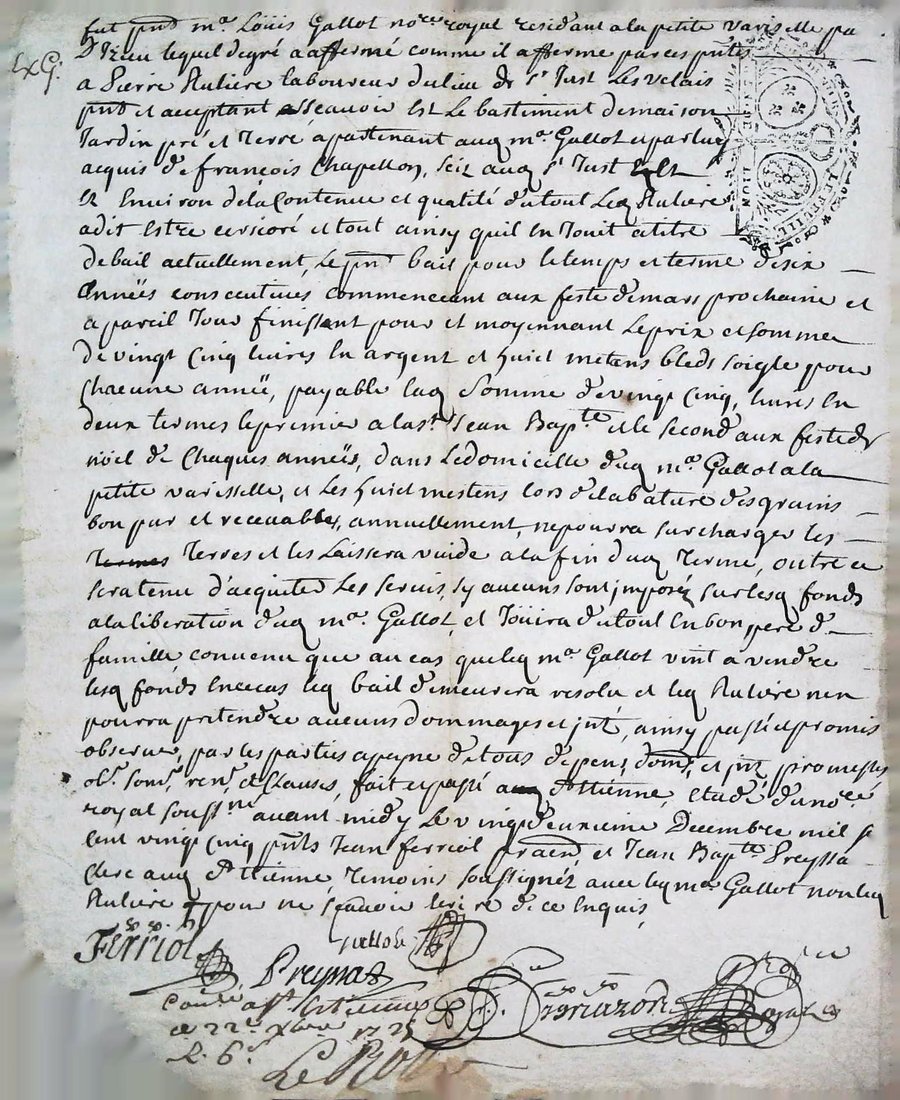 fut pnt me Loüis Gallot nore royal residant ala petite varisselle pa
Exg.
D lequel degré a affermé comme il afferme par ces pntes
a Pierre Rulière laboureur dulieu de st Just Les velais
pnt et acceptant Scauoir est Le bastiment demaison
Jardin pré et Terre apartenant audq me Gallot et parluy
acquis de françois Chapellon, seiz audq st Just
Et Environ dela Contenue et qualité dutout Leq Rulière
adit Estre et tout ainsy quil En Jouit atitre
debail actuellement, Le pnt bail pour letemps et terme desix
Années consecutives commencant aux feste demars prochaine et
a pareil Jour finissent pour et moyennant Leprix et somme
de vingt Cinq livres En argent et huict metens bleds soigle pour
Chacune année, payable laq Somme de vingt Cinq, livres En
deux termes lepremier a la st Jean Bapte et le second aux feste de
noël de Chaques années, dans Ledomicille duq me Gallot ala
petite varisselle, et Les huict mestens lors delabature desgrains
bon pur et recevable, annuellement, nepourra surcharger les
Terres et les Laissera vuide ala fin duq Terme, outre ce
sera tenu d'acquiter Les servis, sy aucuns sont imposés sur lesq fonds
ala liberation duq me Gallot, et Joüira dutout En bon pere de
famille, convenu que au cas queleq me Gallot vint a vendre
lesq fonds Encecas leq bail demeurera resolu et leq Rulière nen
pourra pretendre aucuns dommages et int, ainsy passé et promis
observer, par les parties apeyne de tous depens, doms, et int, promesses
obl. soms, renon, et Clauses, fait et passé a St Etienne, Etude dunore
royal soussne avant midy Le vingt deuxieme Decembre mil se
Cent vingt Cinq pnts Jean ferriol et Jean Bapte Preyssa
Clerc audq St Etienne Temoins soussignéz avec leq me Gallot non leq
Rulière pour ne scavoir Ecrire de ce Enquis
Ferriol
Gallot
Preynas
Royal
Conlé a St Estienne
ce 22e Xbre 1725
R. 6s